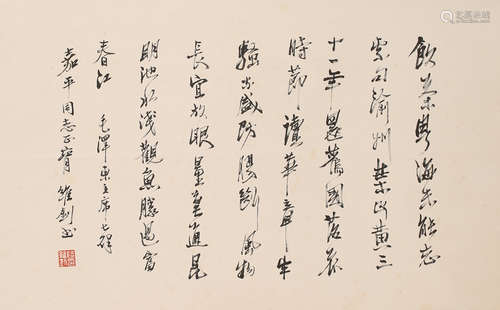 飲茶粤海未能忘
索句渝州葉正黄三
十一年還舊國落花
時節讀華章牢
騷太盛防腸斷風物
長宜放眼量莫道昆
明池水淺觀魚勝過富
春江 毛澤東主席七律
嘉平同志正 維剑书